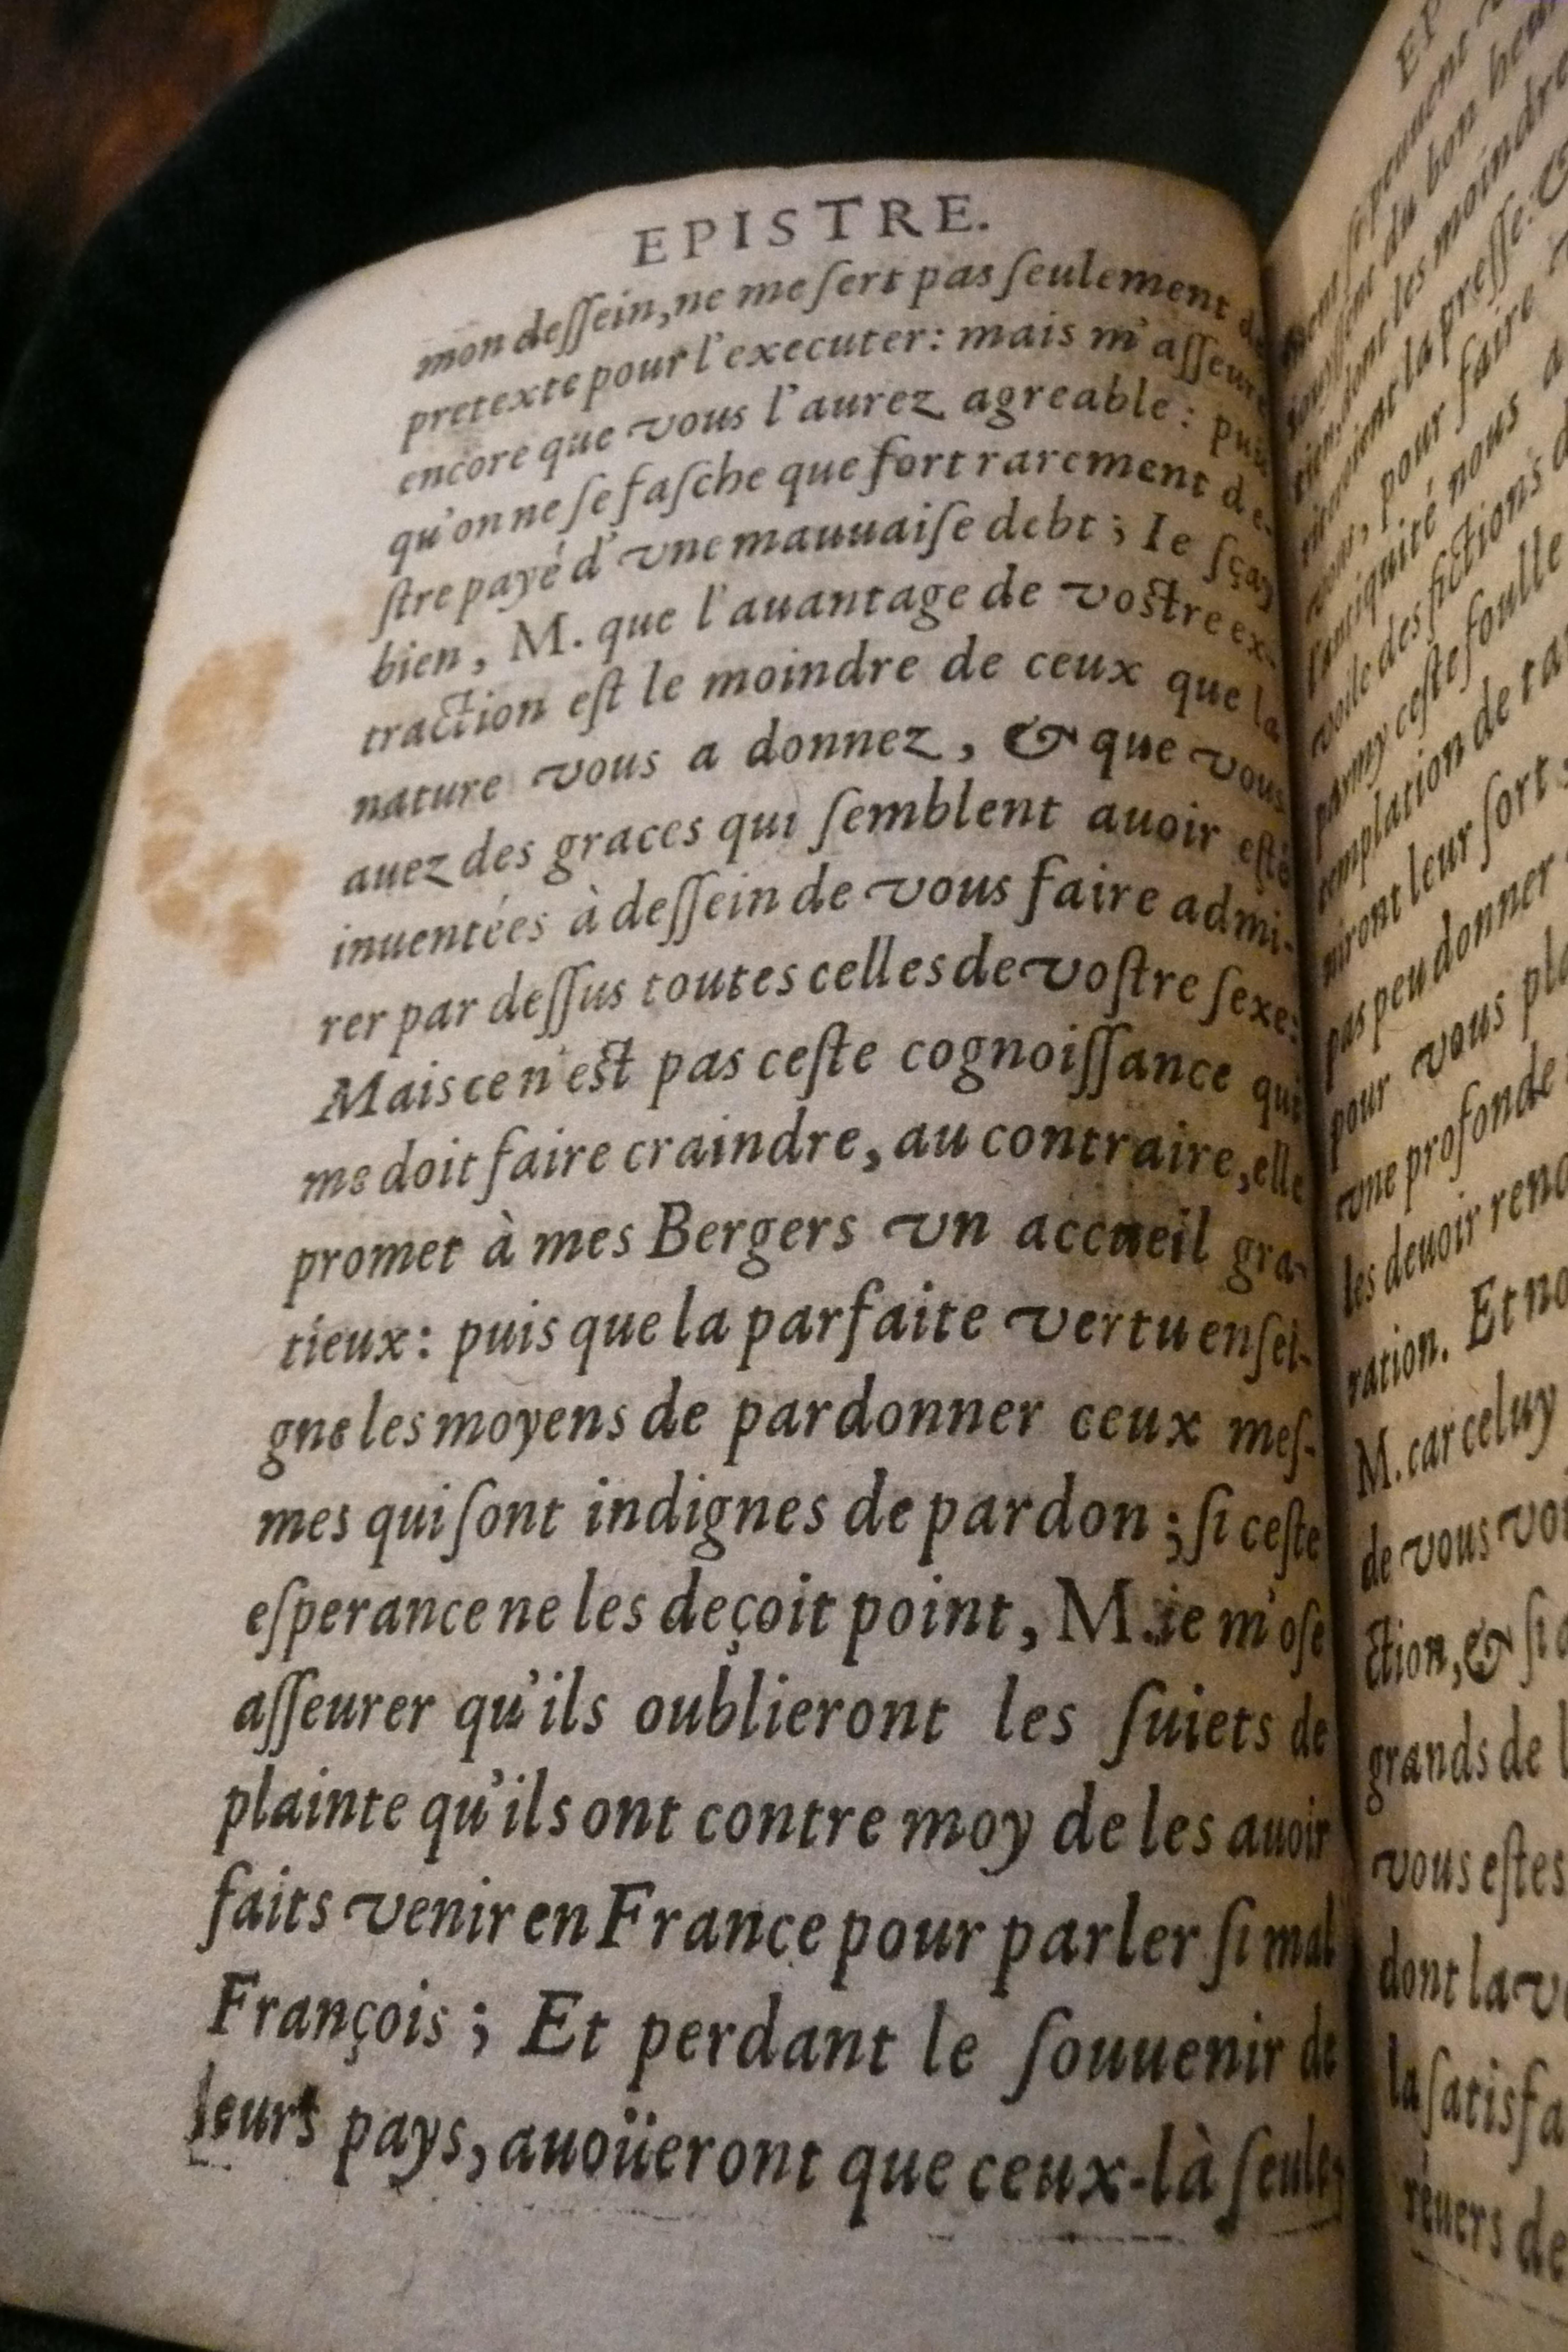 EPISTRE.
mon deſſein, ne me ſert pas ſeulement de
pretexte pour l'executer: mais m'aſſeure
encore que vous l'aurez agreable: puis
qu'on ne ſe faſche que fort rarement d'e-
ſtre payé d'vne mauuaiſe debt; Ie ſçay
bien, M. que l'auantage de voſtre ex-
traction eſt le moindre de ceux que la
nature vous a donnez, & que vous
auez des graces qui ſemblent auoir eſté
inuentées à deſſein de vous faire admi-
rer par deſſus toutes celles de voſtre ſexe:
Mais ce n'eſt pas ceſte cognoiſſance qui
me doit faire craindre, au contraire, elle
promet à mes Bergers vn accueil gra-
tieux: puis que la parfaite vertu enſei-
gne les moyens de pardonner ceux meſ-
mes qui ſont indignes de pardon; ſi ceſte
eſperance ne les deçoit point, M. ie m'oſe
aſſeurer qu'ils oublieront les ſuiets de
plainte qu'ils ont contre moy de les auoir
faits venir en France pour parler ſi mal
François; Et perdant le ſouuenir de
leurs pays, auoüeront que ceux-là ſeule-
EP
du bon heur
dont les moindre
la preſſe: &
pour faire
l'antiquité nous a
voile des fictions d
parmy ceſte foulle
templation de ta
niront leur ſort,
pas peu donner
pour vous pla
vne profonde
les deuoir rend
ration. Et no
M. car celuy
de vous voi
ction, & ſi
grands de l
vous eſtes
dont la v
la ſatisfa
reuers de